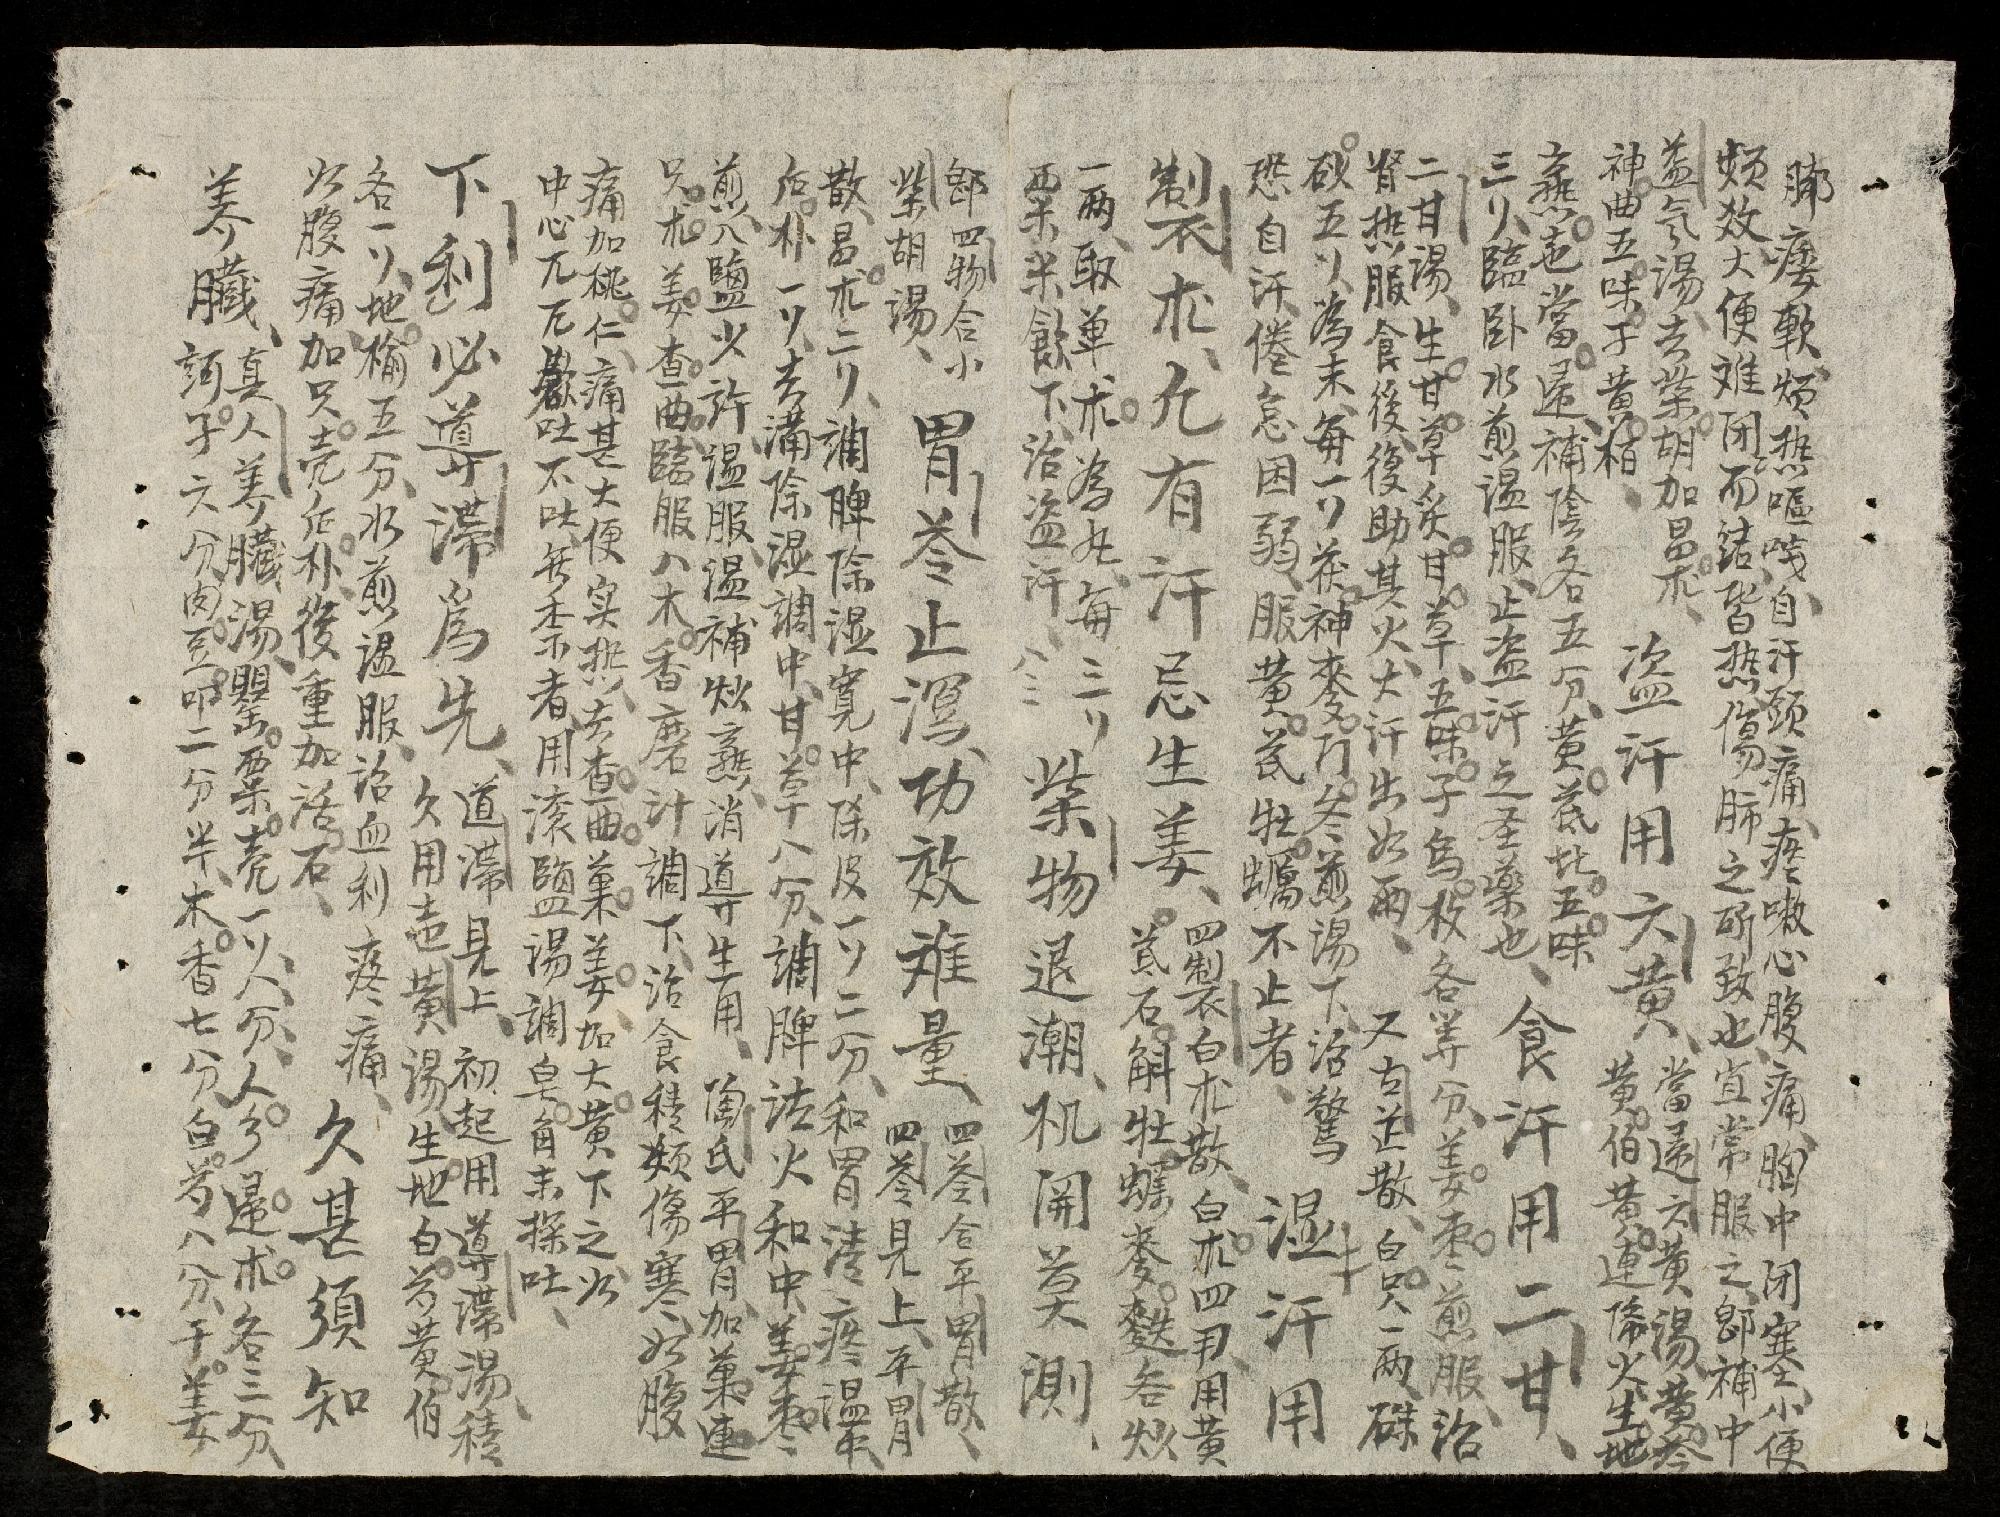 脚痿軟煩热嘔咳自汗頭痛疼嗽心腹痛胸中闭塞小便
頻效大便难闭而結皆热傷肺之所致也宜常服之即補中
益气湯去柴胡加昌朮
神曲五味子黄栢
盗汗用六黄
當归六黄湯黄芩
黄伯黄連降火生地
熟芐當归補陰各五分黄芪北五味
三刂臨卧水煎温服止盗汗之圣藥也
食汗用二甘
二甘湯生甘草炙甘草五味子烏枚各等分姜枣煎服治
肾热服食後復助其火大汗出如雨
又古芷散白只一两硃
砂五刂為末每一刂茯神麥门冬煎湯下治驚
恐自汗倦怠困弱服黄芪牡蠣不止者
湿汗用
製朮凡有汗忌生姜
四製白朮散白朮四刄用黄
芪石斛牡蠣麥麩各炒
一两取单朮為末每三刂
粟米飲下治盗汗
柴物退潮机開莫測
即四物合小
柴胡湯
胃苓止瀉功效难量
四苓合平胃散
四苓見上平胃
散昌朮二刂調脾除湿寛中陈皮一刂二分和胃清疼温中
后朴一刂去满除湿調中甘草八分調脾法火和中姜枣
煎入鹽少許温服温補炒熟消導生用
陶氏平胃加菓連
只朮姜查曲臨服入木香磨汁調下治食積類傷寒如腹
痛加桃仁痛甚大便实热去查曲菓姜加大黄下之如
中心兀兀欲吐不吐無柰者用滚鹽湯調皂角末探吐
下利必導滞為先
道滞見上初起用導滞湯積
久用芭黄湯生地白芍黄伯
各一刂地榆五分水煎温服治血利疼痛
如腹痛加只壳后朴後重加活石
久甚須知
养臟
真人养臟湯罂粟壳一刂八分人参归朮各三分
訶子六分肉豆叩二分半木香七分白芍八分干姜